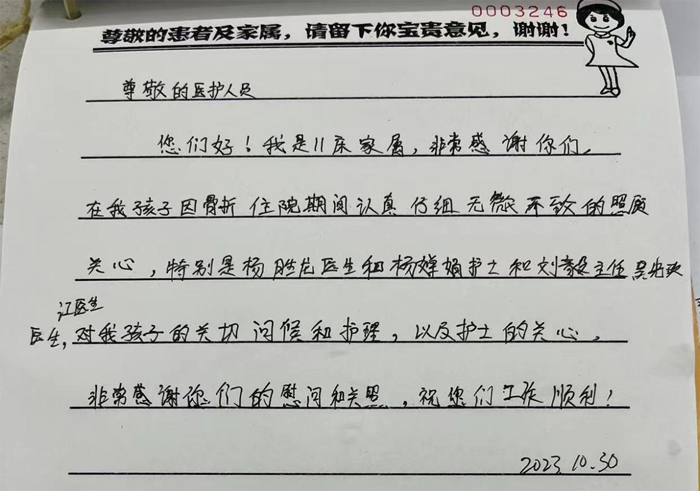 0003246
尊敬的患者及家属，请留下你宝贵意见，谢谢！
尊敬的医护人员
您们好！我是11床家属，非常感谢你们，
在我孩子因骨折住院期间认真仔细无微不致的照顾
关心，特别是杨胜龙医生和杨婵娟护士和刘毅主任
江医生
医生，对我孩子的关切问候和护理，以及护士的关心，
非常感谢您们的慰问和关照，祝您们工作顺利！
2023.10.30